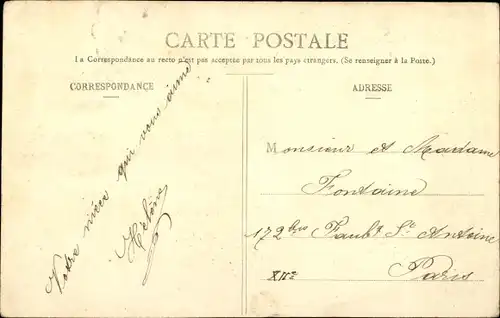 CARTE POSTALE
La Correspondance au recto n'est pas acceptée par tous les pays étrangers. (Se renseigner à la Poste.)
CORRESPONDANCE
ADRESSE
Votre nièce qui vous aime
Hélène
Monsieur et Madame
Fontaine
172 bis Faubt St Antoine
XIIe
Paris